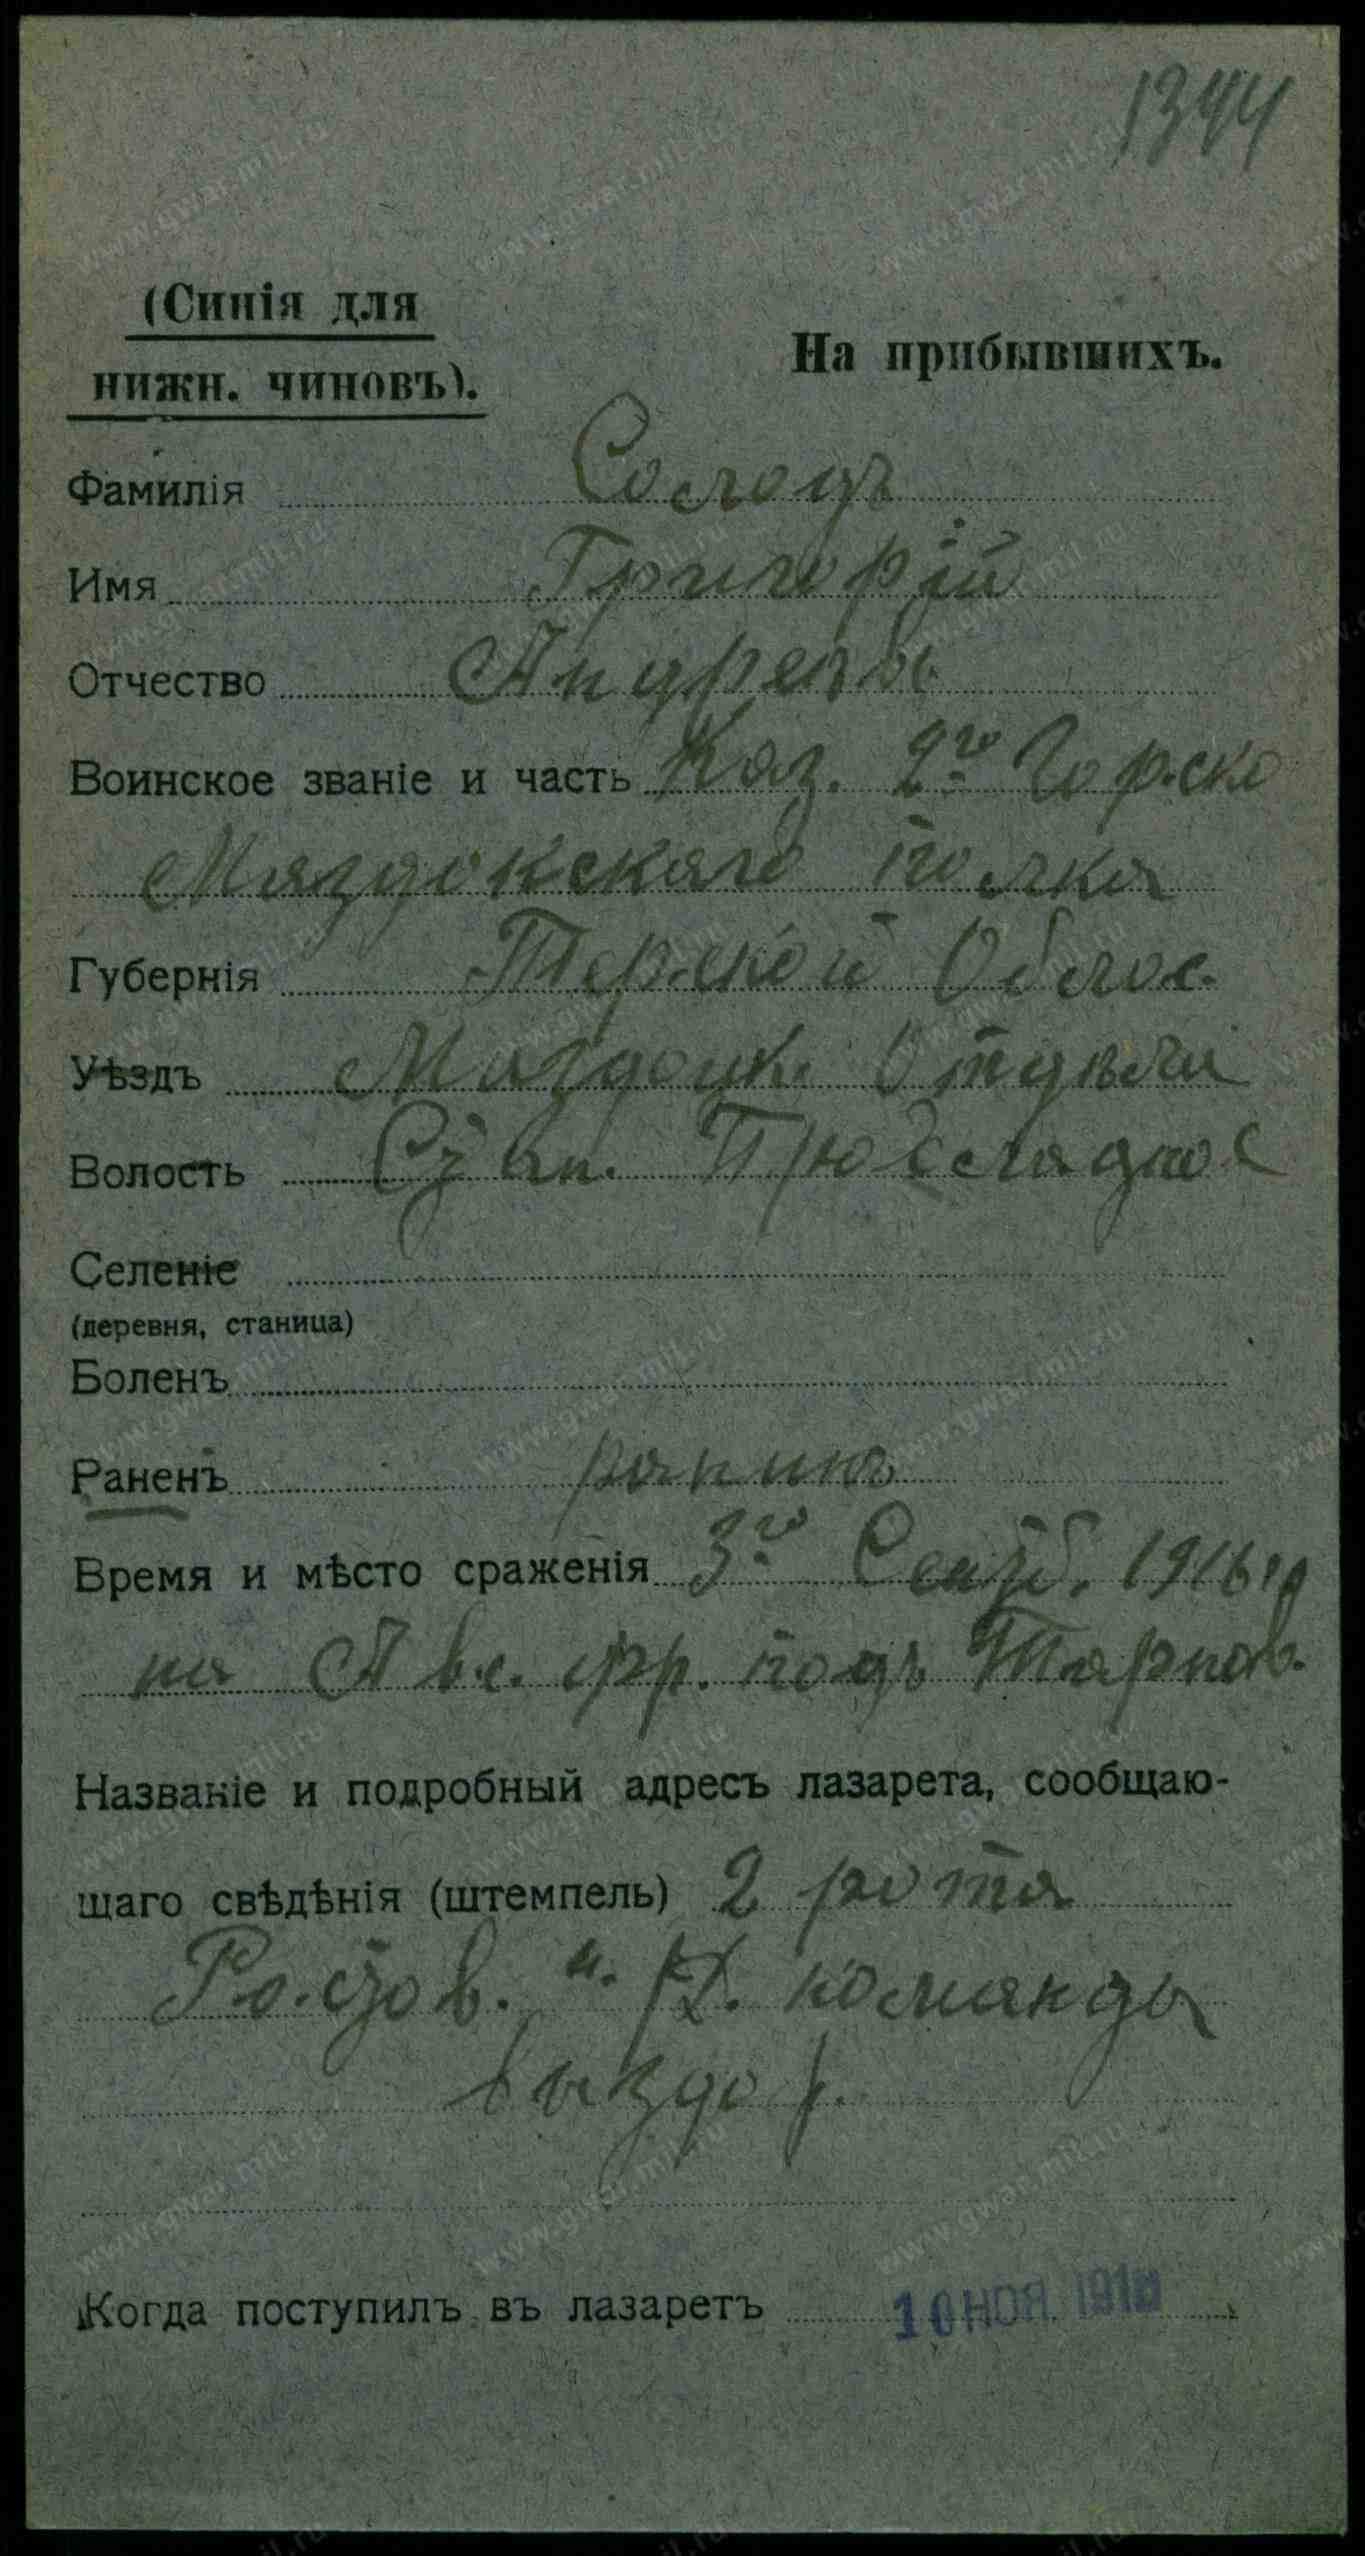 1344
(Синія для
нижн. чиновъ).
На прибывшихъ.
Фамилія Солодъ
Имя Григорій
Отчество Андреевъ
Воинское званіе и часть Каз. 2го Горско
Маздокскаго полка
Губернія Терской Облас.
Уѣздъ Маздоцк. Отдѣла
Волость Стан.
Селеніе
(деревня, станица)
Боленъ
Раненъ
Время и мѣсто сраженія 3го Сентб. 1916 го
на Авс. фр. подъ Тарнов.
Названіе и подробный адресъ лазарета, сообщаю-
щаго свѣдѣнія (штемпель) 2 рота
Росто в. н. Д. команды
выздор.
Когда поступилъ въ лазаретъ 10 НОЯ. 1916
www.gwar.mil.ru